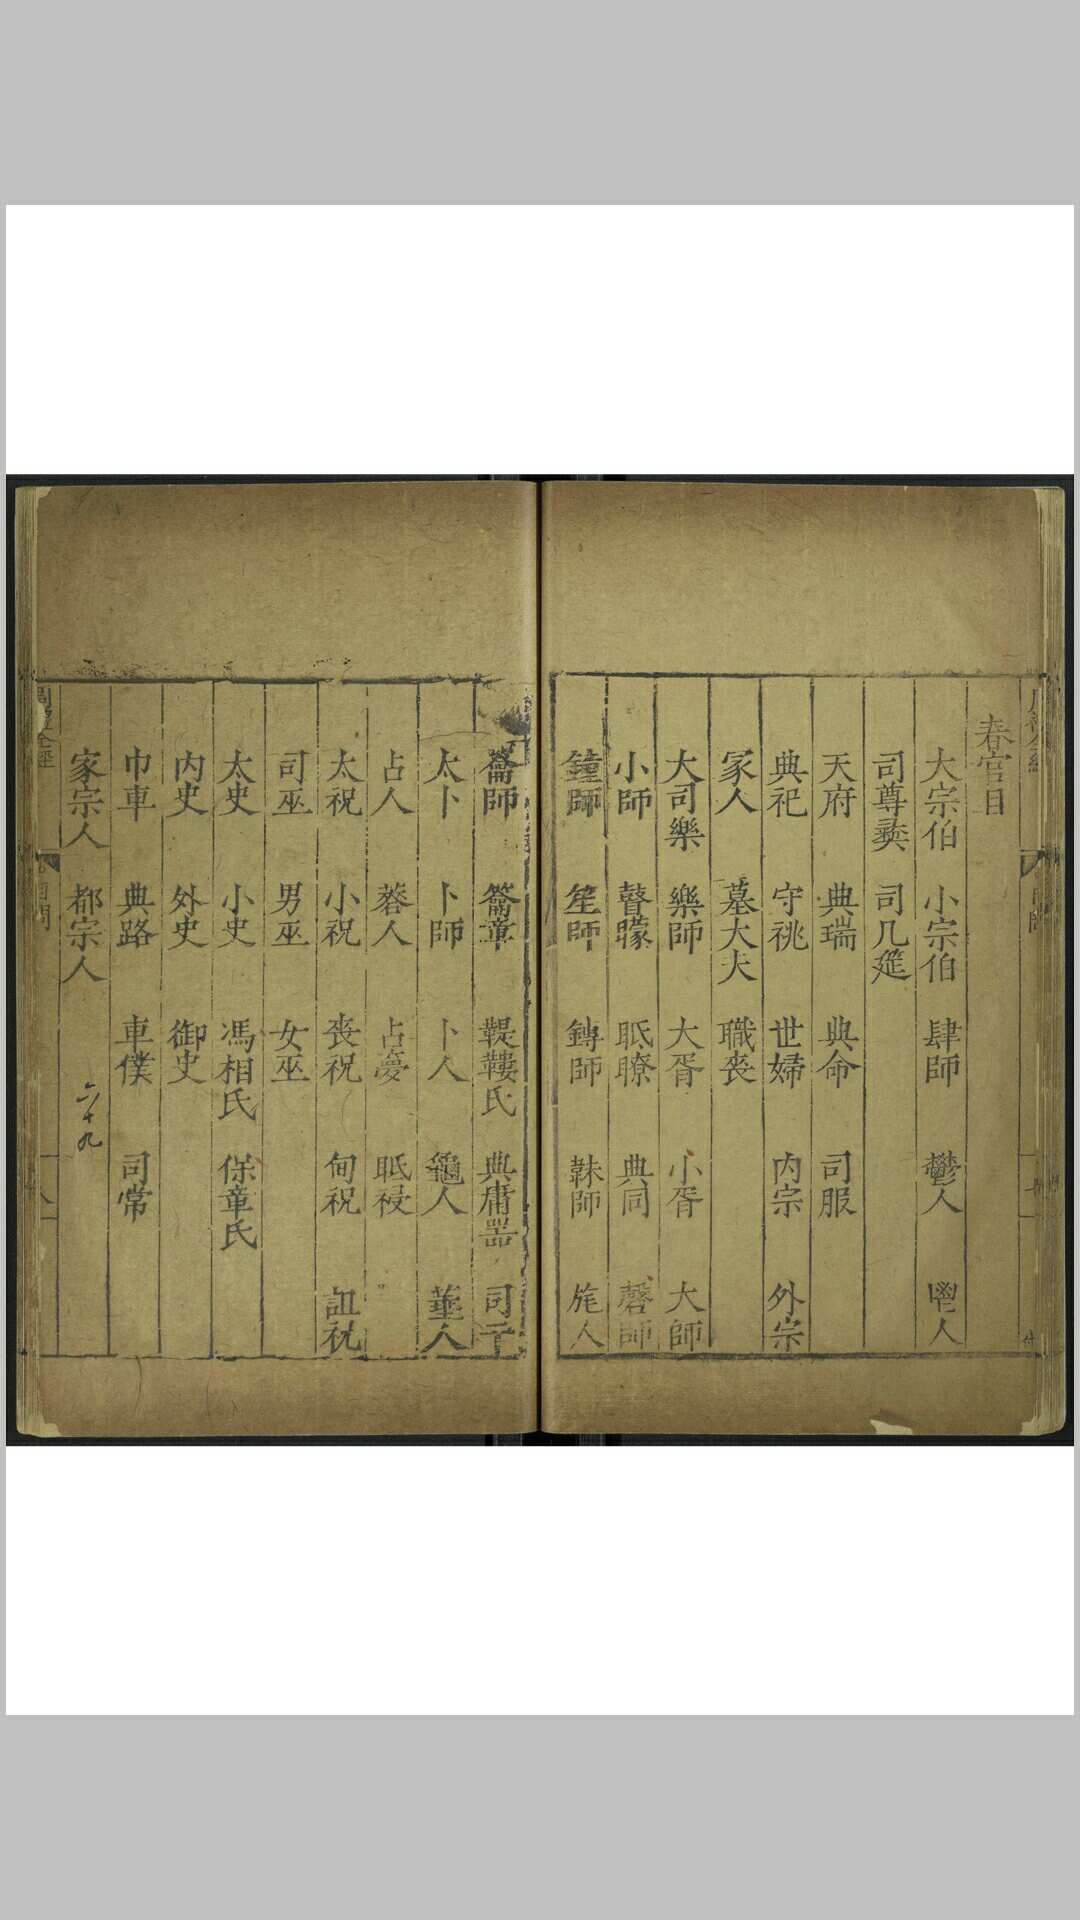 春官目
大宗伯 小宗伯 肆師 鬱人 鬯人
司尊彛 司几筵
天府 典瑞 典命 司服
典祀 守祧 世婦 内宗 外宗
冢人 墓大夫 職喪
大司樂 樂師 大胥 小胥 大師
小師 瞽矇 眂瞭 典同 磬師
鐘師 笙師 鎛師 韎師 旄人
籥師 籥章 鞮鞻氏 典庸器 司干
太卜 卜師 卜人 龜人 菙人
占人 簭人 占夢 眂祲
太祝 小祝 喪祝 甸祝 詛祝
司巫 男巫 女巫
太史 小史 馮相氏 保章氏
内史 外史 御史
巾車 典路 車僕 司常
家宗人 都宗人
六十九